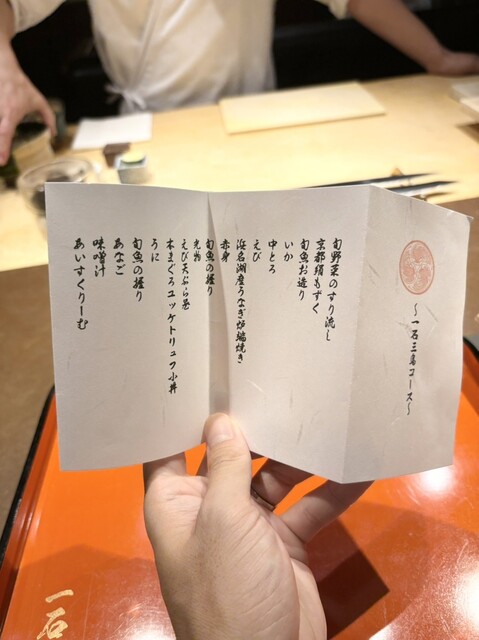 ～一石三鳥コース～
旬野菜のすり流し
京都須もずく
旬魚お造り
いか
中とろ
えび
浜名湖産うなぎ炉端焼き
赤身
旬魚の握り
光物
えび天ぷら巻
本まぐろユッケトリュフ小丼
うに
旬魚の握り
あなご
味噌汁
あいすくりーむ
一石